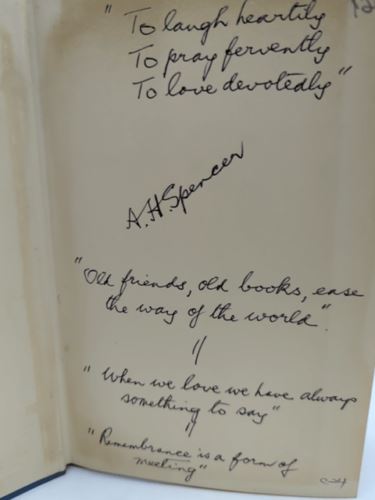 "To laugh heartily
To pray fervently
To love devotedly"
A.H. Spencer
"Old friends, old books, ease
the way of the world".
"When we love we have always
something to say"
"Remembrance is a form of
meeting"